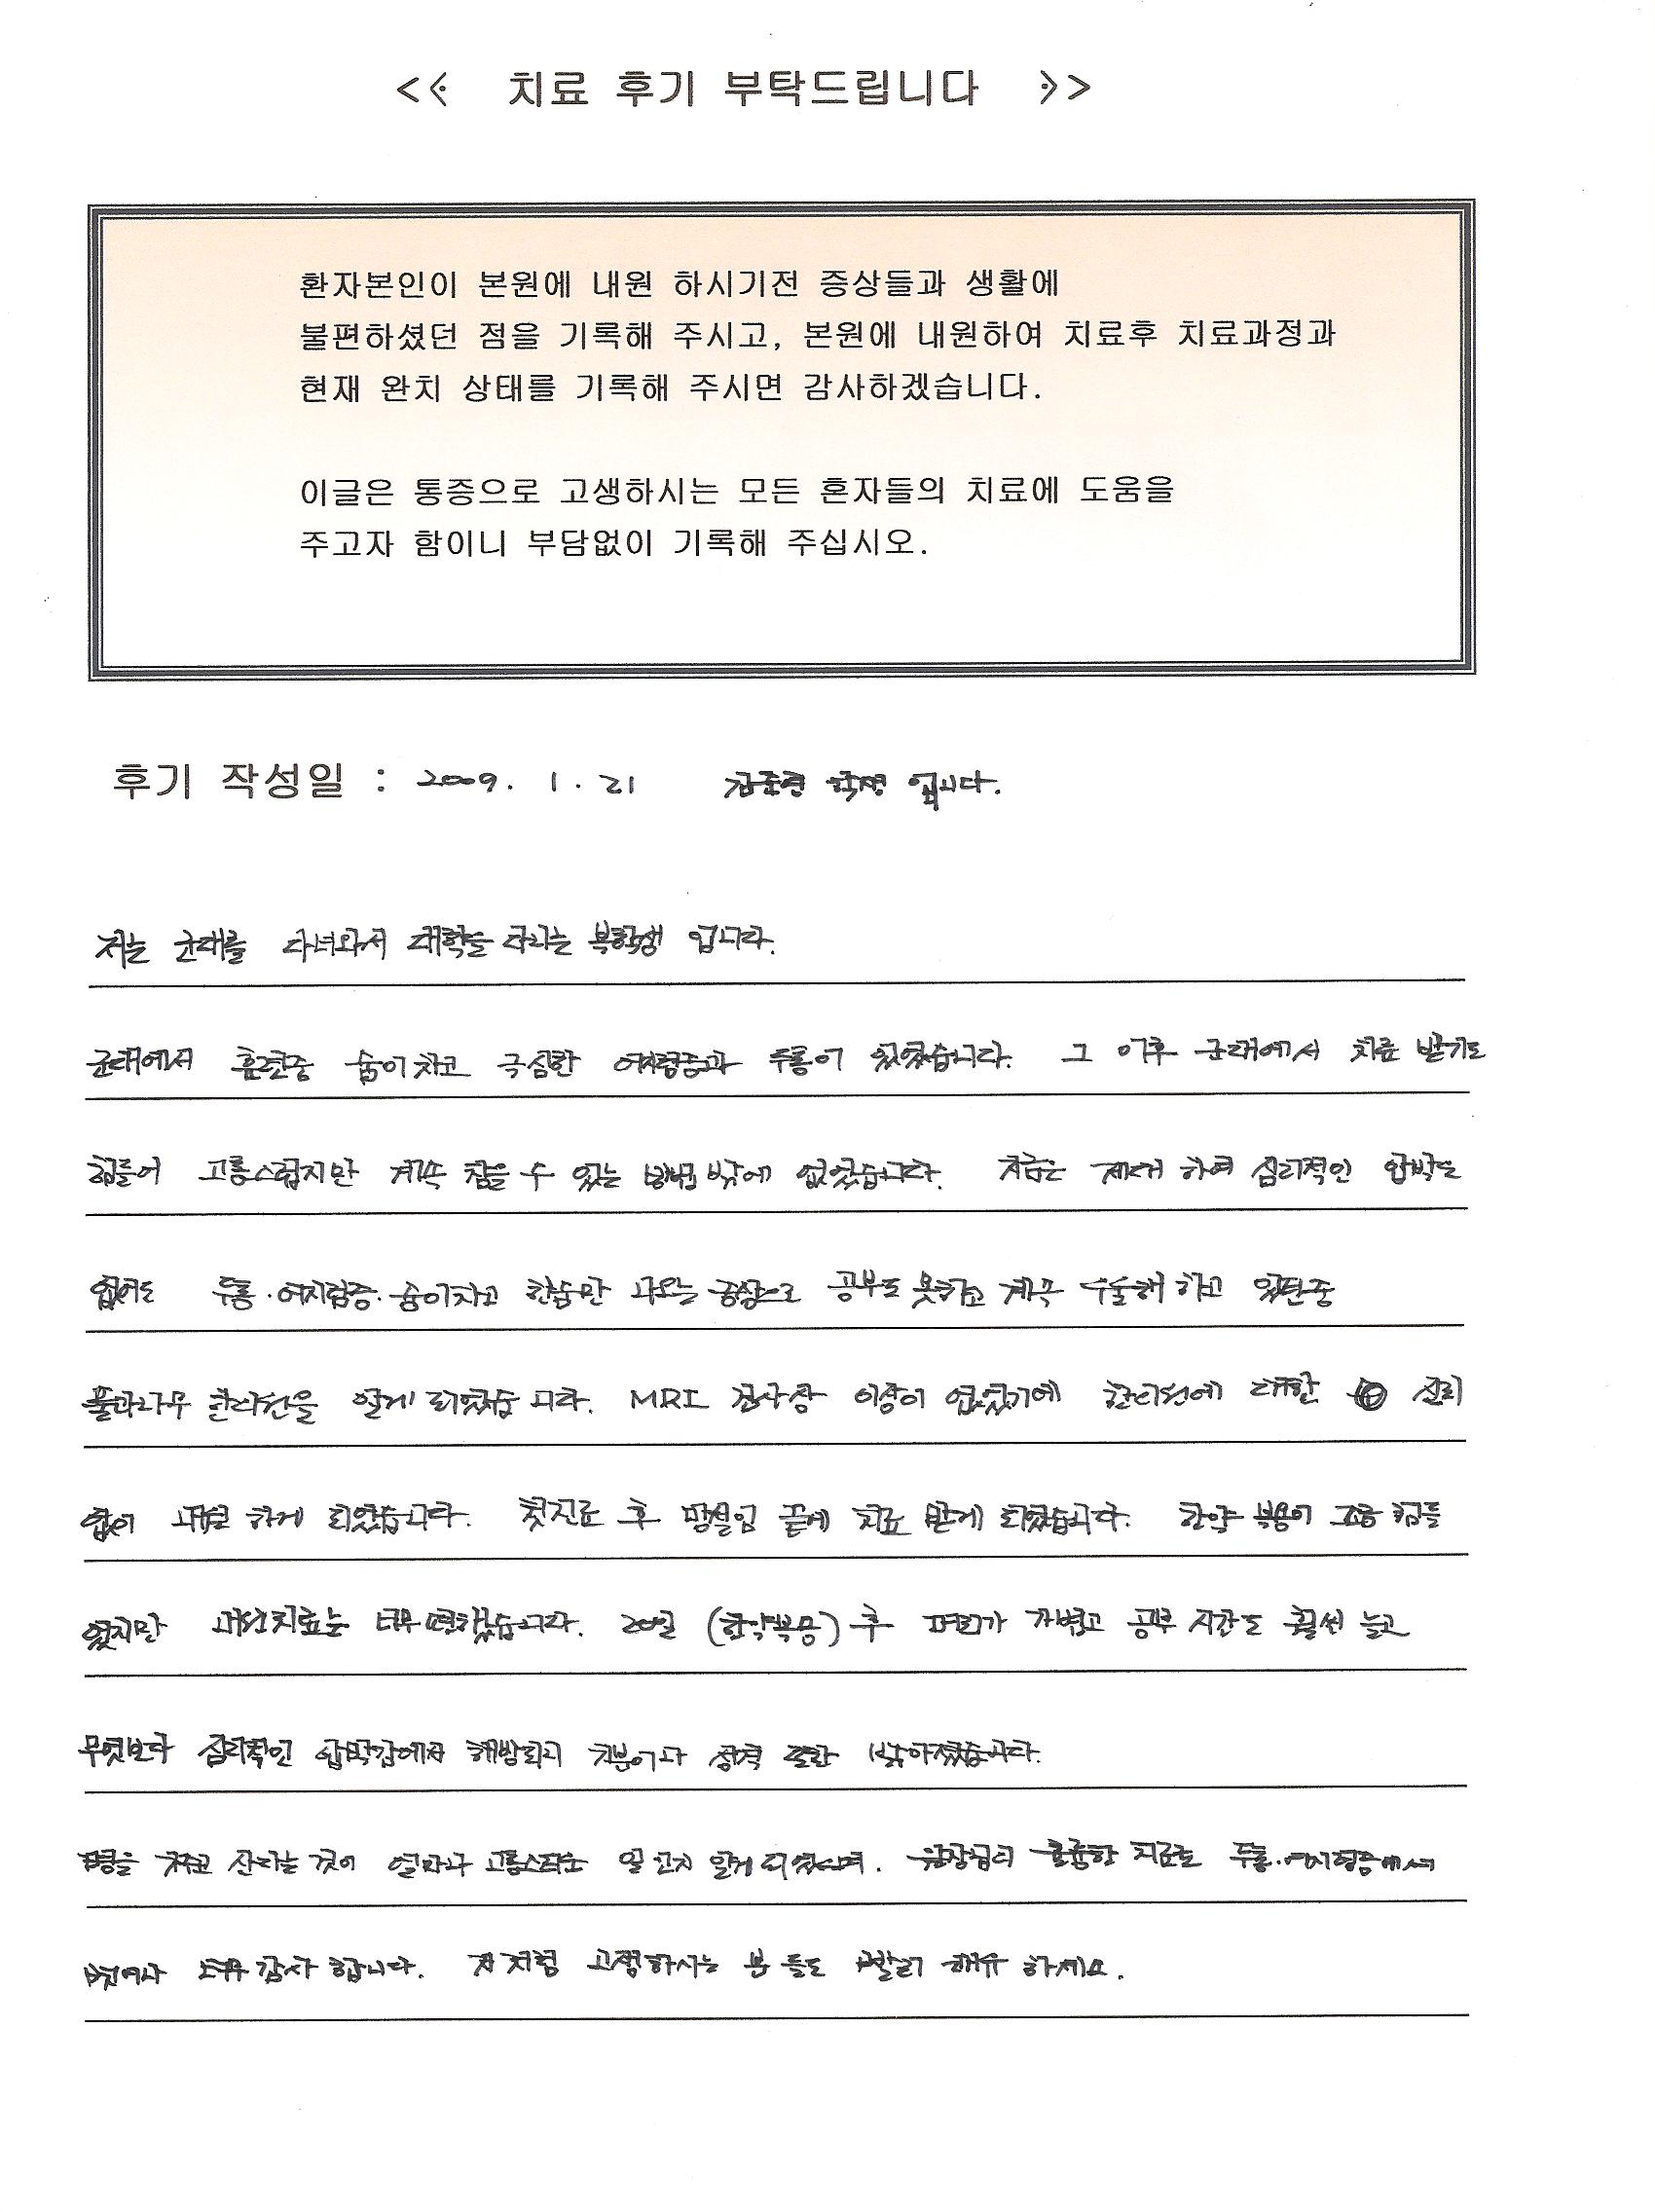 << 치료 후기 부탁드립니다 >>
환자본인이 본원에 내원 하시기전 증상들과 생활에
불편하셨던 점을 기록해 주시고, 본원에 내원하여 치료후 치료과정과
현재 완치 상태를 기록해 주시면 감사하겠습니다.
이글은 통증으로 고생하시는 모든 혼자들의 치료에 도움을
주고자 함이니 부담없이 기록해 주십시오.
후기 작성일 : 2009. 1. 21 입니다.
저는 군대를 다녀와서 대학을 다니는 복학생 입니다.
군대에서 훈련중 숨이차고 극심한 어지럼증과 두통이 있었습니다. 그 이후 군대에서 치료 받기도
힘들어 고통스럽지만 계속 참을 수 있는 방법밖에 없었습니다. 지금은 제대 하여 심리적인 압박도
없어도 두통·어지럼증·숨이차고 한숨만 나오는 증상으로 공부도 못하고 계속 우울해 하고 있던중
풀과나무 한의원을 알게 되었습니다. MRI 검사상 이상이 없었기에 한의원에 대한 신뢰
없이 내원 하게 되었습니다. 첫진료 후 망설임 끝에 치료 받게 되었습니다. 한약 복용이 조금 힘들
었지만 치료는 너무 편했습니다. 20일 (한약복용) 후 머리가 가볍고 공부 시간도 훨씬 늘고
무엇보다 심리적인 압박감에서 해방되니 기분이나 성격 또한 밝아졌습니다.
병을 가지고 산다는 것이 얼마나 고통스러운 일인지 알게 되었으며. 원장님의 훌륭한 치료로 두통·어지럼증에서
벗어나 너무 감사 합니다. 저처럼 고생하시는 분 들도 빨리 쾌유 하세요.